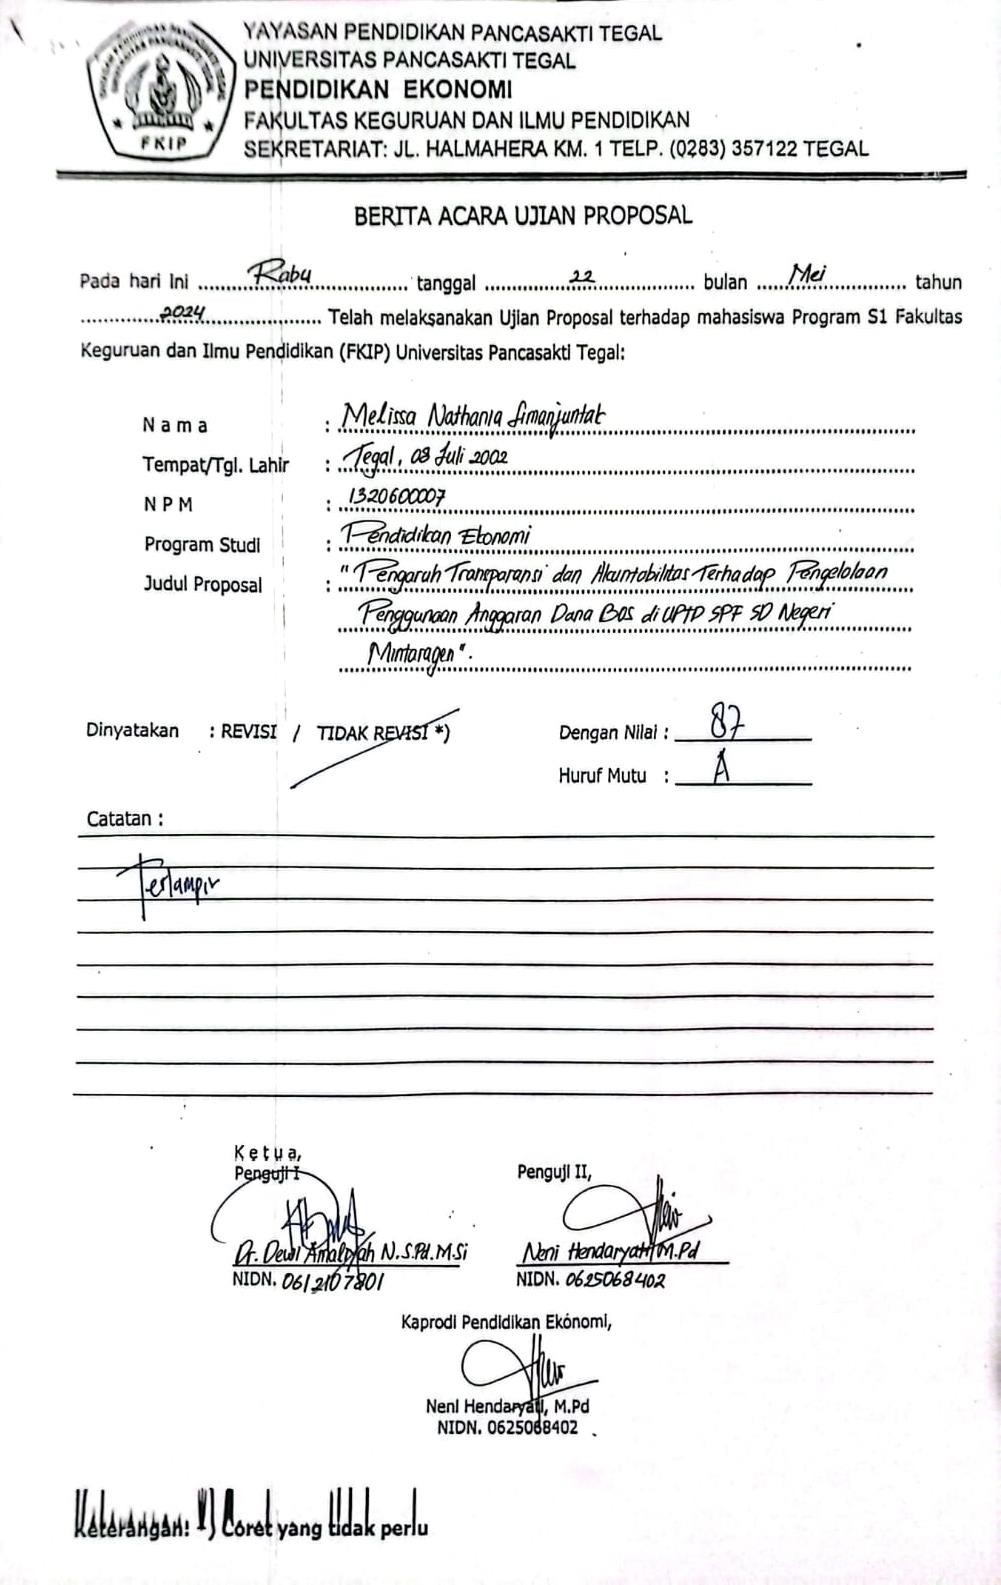 YAYASAN PENDIDIKAN PANCASAKTI TEGAL
UNIVERSITAS PANCASAKTI TEGAL
PENDIDIKAN EKONOMI
FAKULTAS KEGURUAN DAN ILMU PENDIDIKAN
SEKRETARIAT: JL. HALMAHERA KM. 1 TELP. (0283) 357122 TEGAL
FKIP
BERITA ACARA UJIAN PROPOSAL
Pada hari Ini Rabu tanggal 22 bulan Mei tahun
2024 Telah melaksanakan Ujian Proposal terhadap mahasiswa Program S1 Fakultas
Keguruan dan Ilmu Pendidikan (FKIP) Universitas Pancasakti Tegal:
N a m a : Melissa Nathania Simanjuntak
Tempat/Tgl. Lahir : Tegal, 03 Juli 2002
N P M : 1320600007
Program Studi : Pendidikan Ekonomi
Judul Proposal : "Pengaruh Transparansi dan Akuntabilitas Terhadap Pengelolaan
Penggunaan Anggaran Dana Bos di UPTD SPF SD Negeri
Mintaragen".
Dinyatakan : REVISI / TIDAK REVISI *) Dengan Nilai : 87
Huruf Mutu : A
Catatan :
Terlampir
K e t u a,
Penguji I Penguji II,
Dr. Dewi Amaliyah N.S.Pd.M.Si Neni Hendaryati M.Pd
NIDN. 0612107801 NIDN. 0625068402
Kaprodi Pendidikan Ekonomi,
Neni Hendaryati, M.Pd
NIDN. 0625068402
Keterangan: *) Coret yang tidak perlu